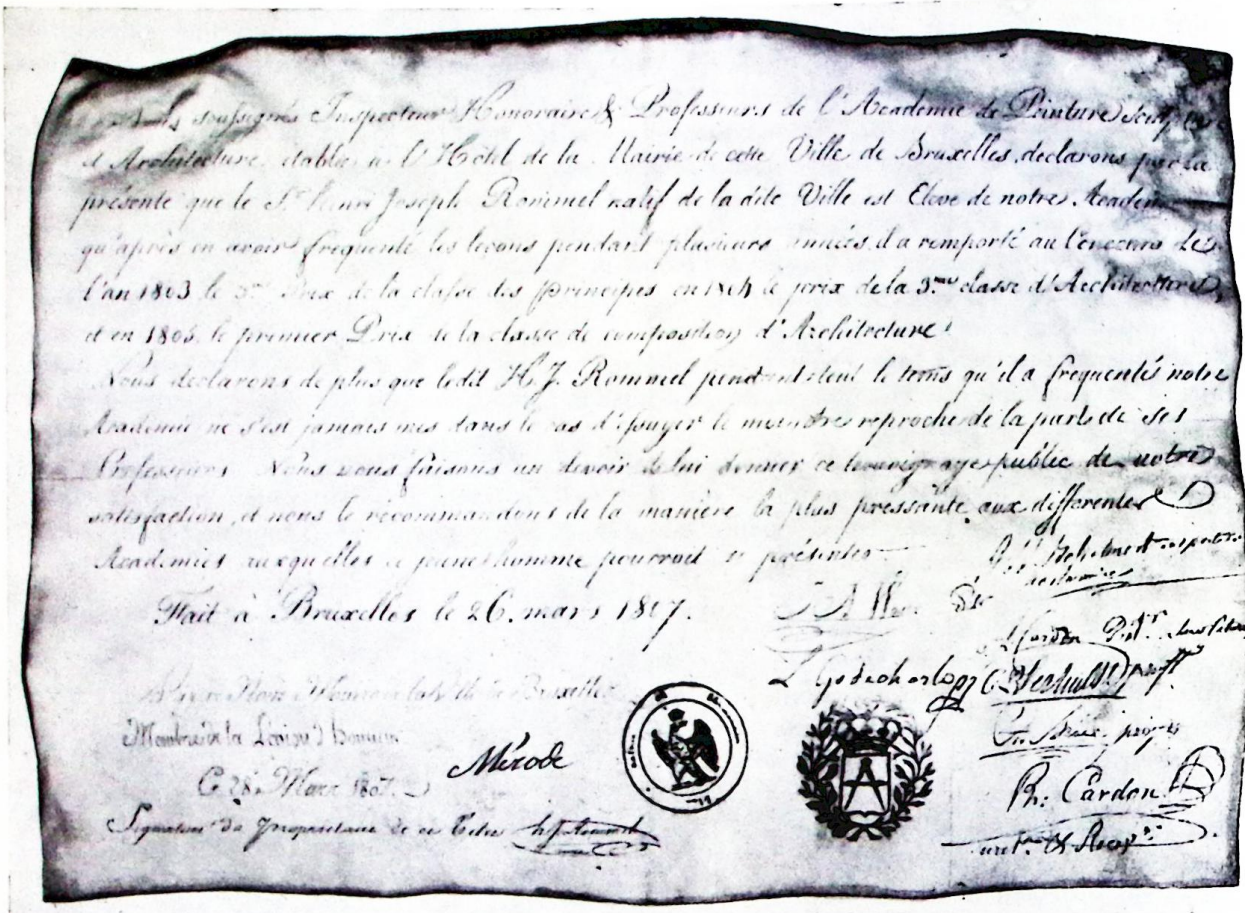 soussignés Inspecteur Honoraire & Professeurs de l'Academie de Peinture, Sculpture
et Architecture, établie à l'Hôtel de la Mairie de cette Ville de Bruxelles, declarons par la
présente que le Sr. henri Joseph Rommel natif de la dite Ville est Eleve de notre Academie
qu'après en avoir frequenté les leçons pendant plusieurs années, il a remporté au Concours de
l'an 1803 le 3me Prix de la classe des principes en 1804 le prix de la 3.me classe d'Architecture,
et en 1805. le premier Prix de la classe de composition d'Architecture
Nous declarons de plus que ledit H. J. Rommel pendant tout le tems qu'il a frequentés notre
Academie ne s'est jamais mis dans le cas d'essuyer le moindre reproche de la part de ses
Professeurs. Nous nous faisons un devoir de lui donner ce temoignage public de notre
satisfaction, et nous le recommandons de la manière la plus pressante aux differentes
Academies auxquelles ce jeune homme pourroit se présenter
Fait à Bruxelles le 26. mars 1807.
L Godecharle
Verhulst proff
la Ville de Bruxelles
Membre de la Légion d'honneur
Ce 28 Mars 1807.
Mérode
Ph: Cardon
Signature du Propriétaire de ce Titre hjrommel